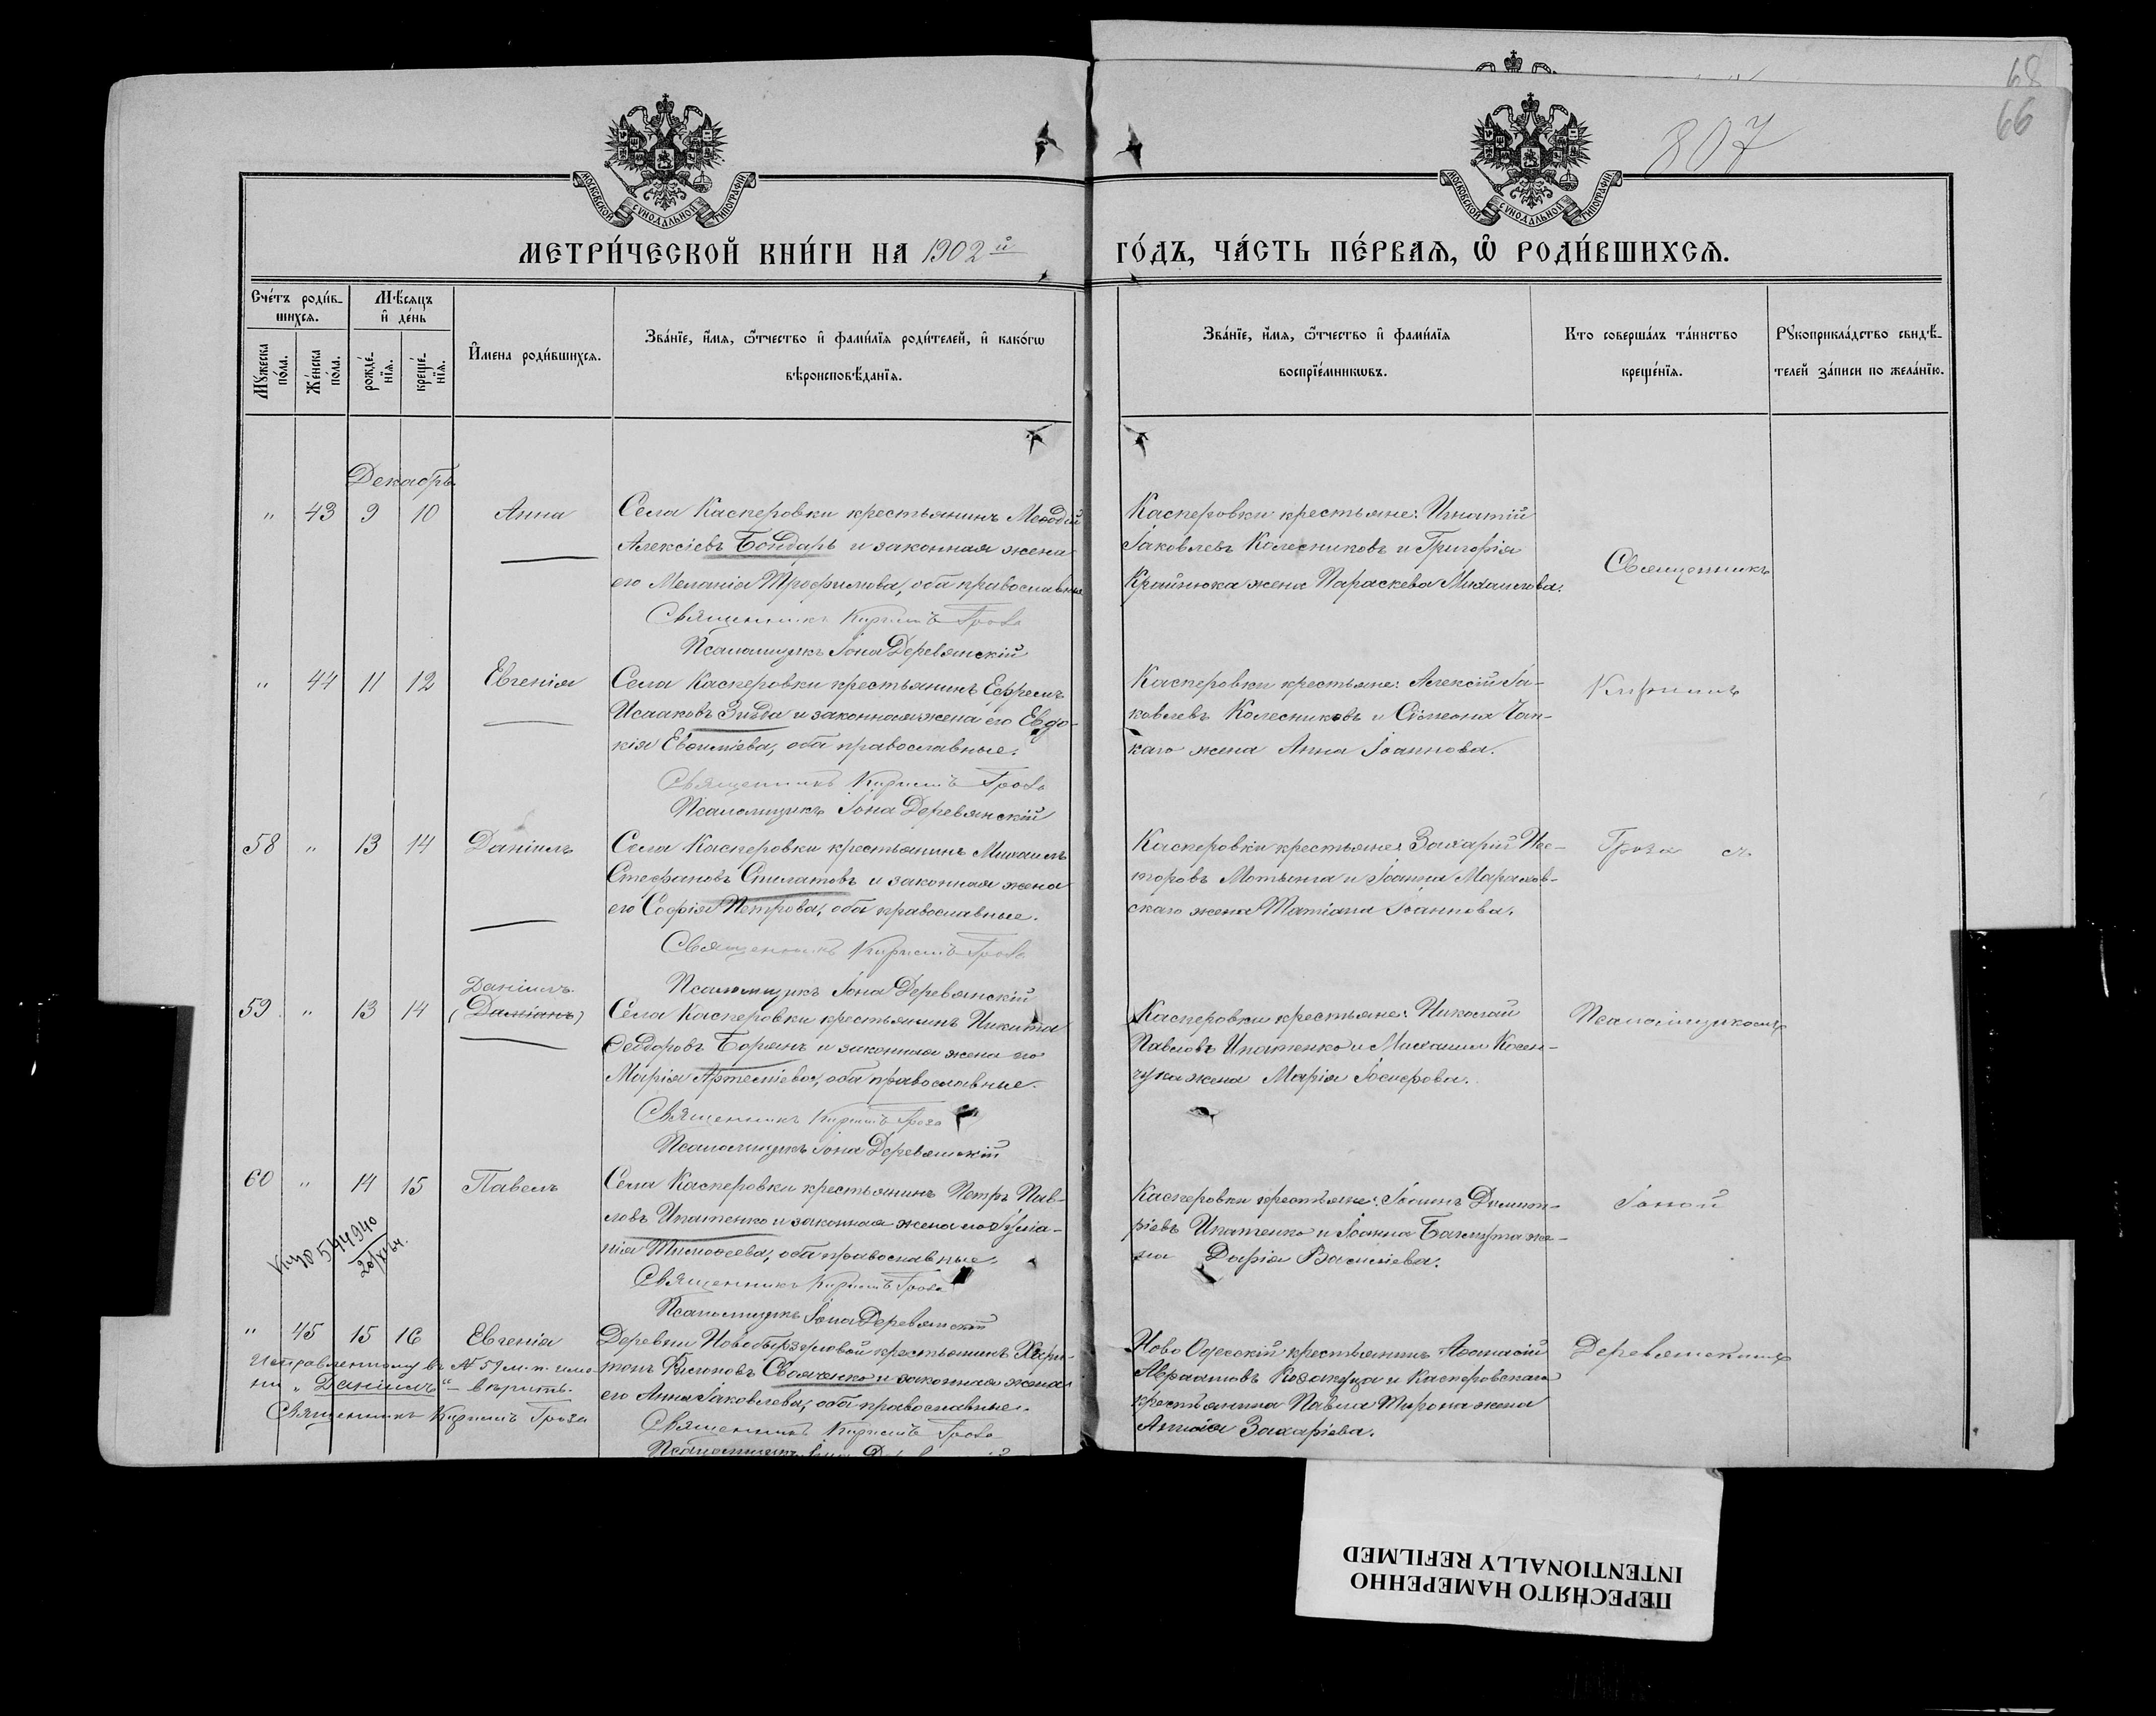 68
66
807
МОСКОВСКОЙ СѴНОДАЛЬНОЙ ТИПОГРАФІИ
МОСКОВСКОЙ СѴНОДАЛЬНОЙ ТИПОГРАФІИ
МЕТРИ́ЧЕСКОЙ КНИ́ГИ НА 1902й ГО́ДЪ, ЧА́СТЬ ПЕ́РВАѦ, Ѽ РОДИ́ВШИХСѦ.
Сче́тъ роди́в-
шихсѧ.
Мѣ́сѧцъ
и҆ де́нь
Мꙋ́жеска
по́ла.
Же́нска
по́ла.
рожде́-
нїѧ.
креще́-
нїѧ.
И҆мена роди́вшихсѧ.
Зва́нїе, и҆́мѧ, ѻ҆́тчество и҆ фами́лїѧ роди́телей, и҆ како́гѡ
вѣроисповѣ́данїѧ.
Зва́нїе, и҆́мѧ, ѻ҆́тчество и҆ фами́лїѧ
воспрїе́мникѡвъ.
Кто соверша́лъ та́инство
креще́нїѧ.
Рꙋкоприкла́дство свидѣ́-
телей за́писи по жела́нїю.
Декабрь
" 43 9 10 Анна
Села Касперовки крестьянинъ Меѳодій
Алексіевъ Бондарь и законная жена
его Меланія Трофимова, оба православные
Священникъ Кириллъ Гроза
Псаломщикъ Іона Деревянскій
Касперовки крестьяне: Игнатій
Іаковлевъ Колесниковъ и Григорія
Крайнюка жена Параскева Михаилова.
Священникъ
" 44 11 12 Евгенія
Села Касперовки крестьянинъ Ефремъ
Исааковъ и законная жена его Евдо-
кія Евѳиміева, оба православные.
Священникъ Кириллъ Гроза
Псаломщикъ Іона Деревянскій
Касперовки крестьяне: Алексій Іа-
ковлевъ Колесниковъ и Сѵмеона Чап-
каго жена Анна Іоаннова.
Кириллъ
58 " 13 14 Даніилъ
Села Касперовки крестьянинъ Михаилъ
Стефановъ Спилатовъ и законная жена
его Софія Петрова, оба православные.
Священникъ Кириллъ Гроза
Псаломщикъ Іона Деревянскій
Касперовки крестьяне: Захарій Нес-
торовъ Мотынга и Іоанна Марахов-
скаго жена Татіана Іоаннова.
Гроза съ
Даніилъ
59 " 13 14 (Даміанъ)
Села Касперовки крестьянинъ Никита
Ѳеодоровъ Борянъ и законная жена его
Марія Артеміева, оба православные.
Священникъ Кириллъ Гроза
Псаломщикъ Іона Деревянскій
Касперовки крестьяне: Николай
Павловъ Ипатенко и Михаила Косен-
чука жена Марія Іосифова.
Псаломщикомъ
60 " 14 15 Павелъ
Села Касперовки крестьянинъ Петръ Пав-
ловъ Ипатенко и законная жена его Іуліа-
нія Тимоѳеева, оба православные.
Священникъ Кириллъ Гроза
Псаломщикъ Іона Деревянскій
Касперовки крестьяне: Іоаннъ Димит-
ріевъ Ипатенко и Іоанна Бахмута же-
на Дарія Василіева.
Іоной
544940
" 45 15 16 Евгенія
Деревни Новобирзуловой крестьянинъ Хари-
тонъ и законная жена
его Анна Іаковлева, оба православные.
Священникъ Кириллъ Гроза
Псаломщикъ Іона
Ново Одесскій крестьянинъ Аѳанасій
Авраамовъ и Касперовскаго
крестьянина Павла Мирона жена
Захаріева.
Деревянскимъ
Исправленному въ № 59 м. п. име-
ни „Даніилъ" – вѣрить.
Священникъ Кириллъ Гроза
ПЕРЕСНЯТО НАМЕРЕННО
INTENTIONALLY REFILMED